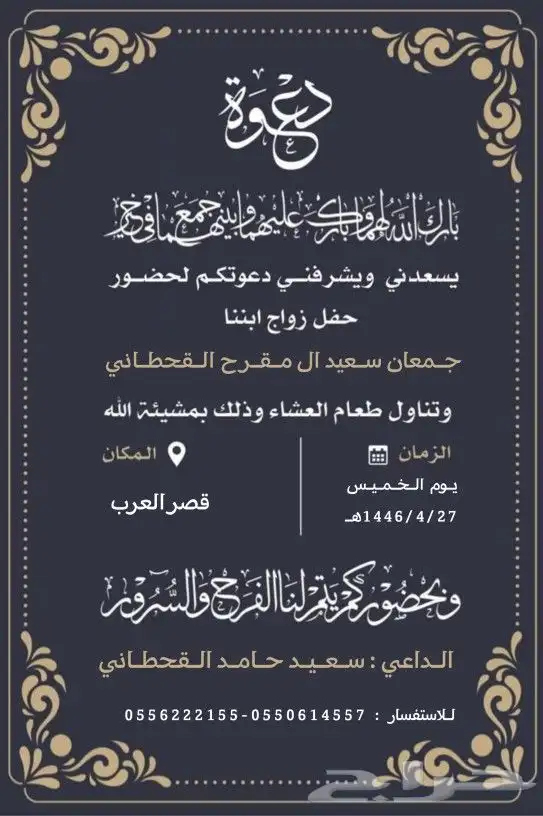 دعوة
بارك الله لهما وبارك عليهما وجمع بينهما في خير
يسعدني ويشرفني دعوتكم لحضور
حفل زواج ابننا
جمعان سعيد ال مقرح القحطاني
وتناول طعام العشاء وذلك بمشيئة الله
الزمان
يوم الخميس
1446/4/27هـ
المكان
قصر العرب
وبحضوركم يتم لنا الفرح والسرور
الداعي : سعيد حامد القحطاني
للاستفسار : 0550614557-0556222155
حراج